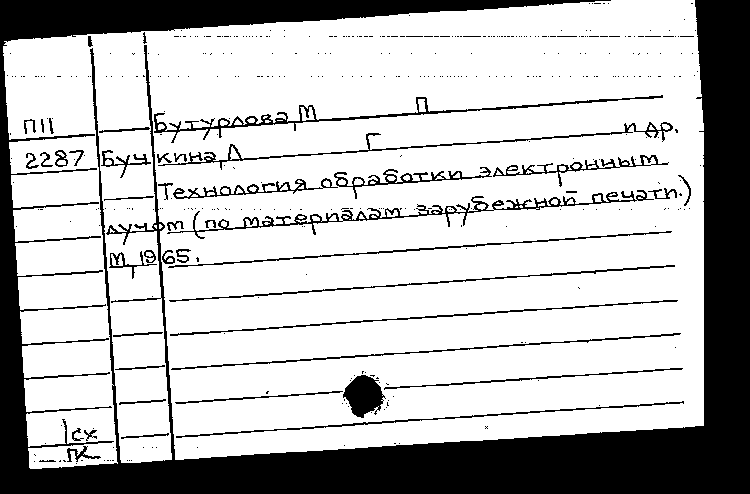 ПП Бутурлова, М П
2287 Бучкина, Л Г и др.
Технология обработки электронным
лучом (по материалам зарубежной печати.)
М, 1965.
1сх
ПК